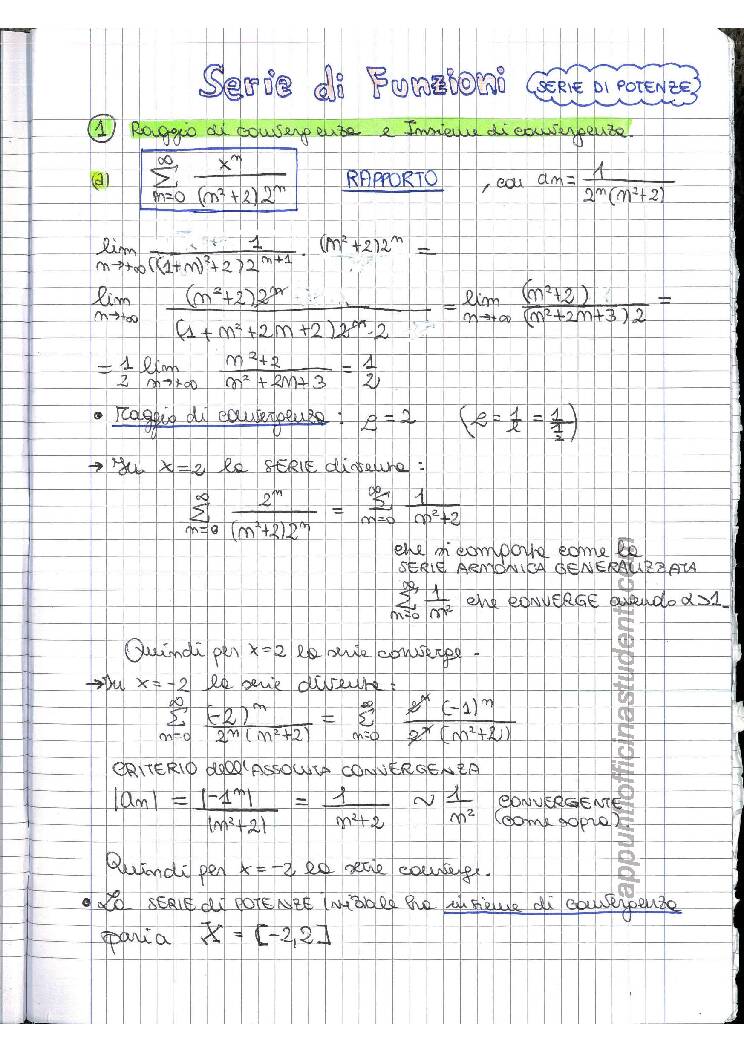 Serie di Funzioni (SERIE DI POTENZE)
① Raggio di convergenza e Insieme di convergenza.
(a) ∑_{n=0}^{∞} x^n / ((n²+2)2^n) RAPPORTO , con an = 1 / (2^n(n²+2))
lim_{n→+∞} 1 / (((1+n)²+2)2^{n+1}) · (n²+2)2^n =
lim_{n→+∞} (n²+2)2^n / ((1+n²+2n+2)2^n·2) = lim_{n→+∞} (n²+2) / ((n²+2n+3)2) =
= 1/2 lim_{n→+∞} (n²+2) / (n²+2n+3) = 1/2
• Raggio di convergenza : R = 2 (R = 1/l = 1/(1/2))
→ In x=2 la SERIE diventa :
∑_{n=0}^{∞} 2^n / ((n²+2)2^n) = ∑_{n=0}^{∞} 1 / (n²+2)
che si comporta come la
SERIE ARMONICA GENERALIZZATA
∑_{n=0}^{∞} 1/n² che CONVERGE avendo α>1.
Quindi per x=2 la serie converge.
→ In x=-2 la serie diventa :
∑_{n=0}^{∞} (-2)^n / (2^n(n²+2)) = ∑_{n=0}^{∞} 2^n (-1)^n / (2^n (n²+2))
CRITERIO dell'ASSOLUTA CONVERGENZA
|an| = |-1^n| / |n²+2| = 1 / (n²+2) ~ 1/n² CONVERGENTE
(come sopra).
Quindi per x=-2 la serie converge.
• La SERIE di POTENZE iniziale ha insieme di convergenza
pari a X = [-2,2]
appuntiofficinastudent.com